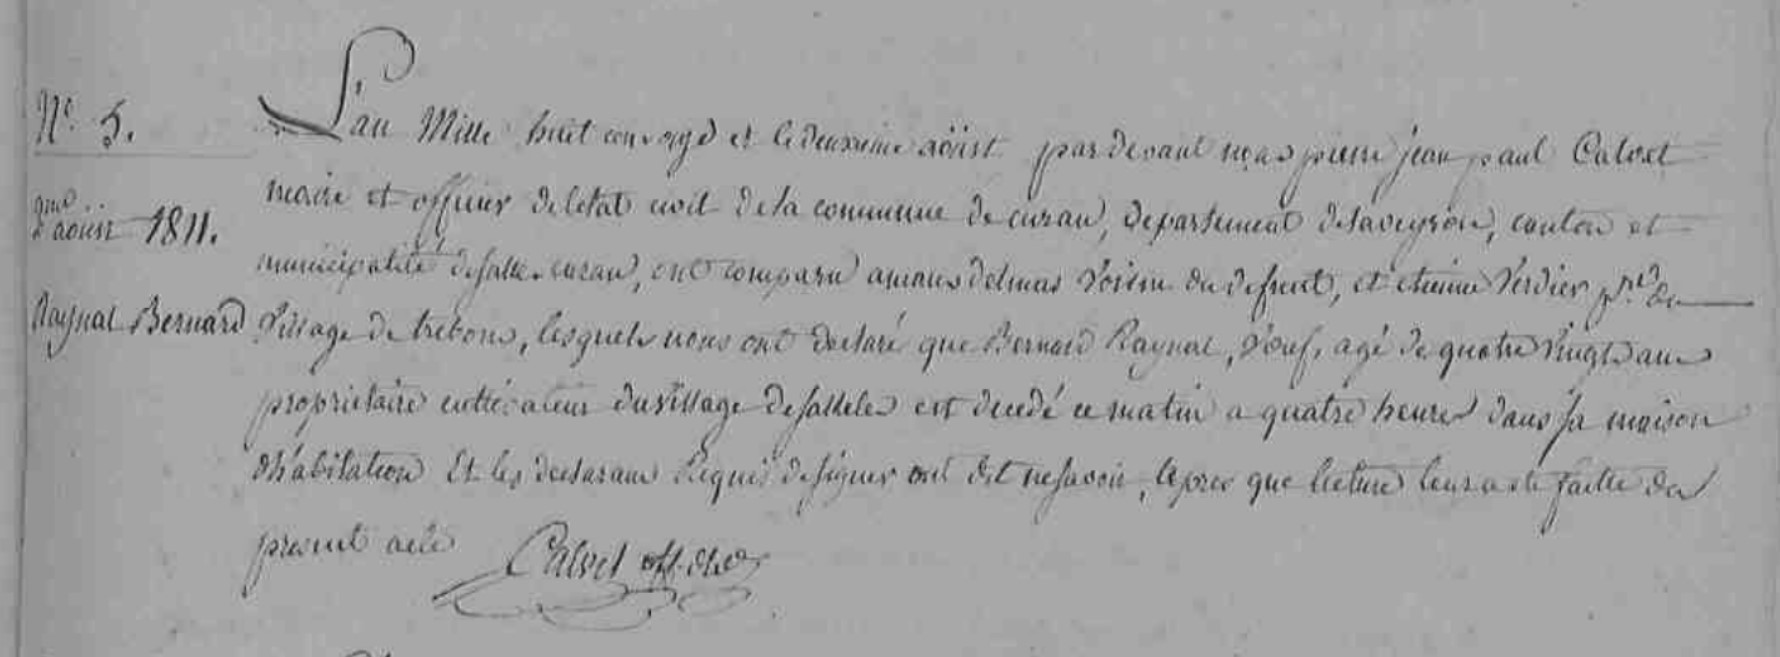 N.° 5.
2.me août 1811.
Raynal Bernard
L'an Mille huit cent onze et le deuxieme août pardevant nous pierre jean paul Calvet
maire et officier de letat civil de la commune de curan, departement de laveyron, canton et
municipalité de salle-curan, ont comparu amans delmas voisin du defunt, et etienne Verdier p.re du
village de trebons, lesquels nous ont declaré que Bernard Raynal, veuf, agé de quatre vingts ans
proprietaire cultivateur du village de salleles est decedé ce matin a quatre heures dans sa maison
d'habitation Et les declarans requis de signer ont dit ne savoir, apres que lecture leur a eté faitte du
present acte Calvet off. civil